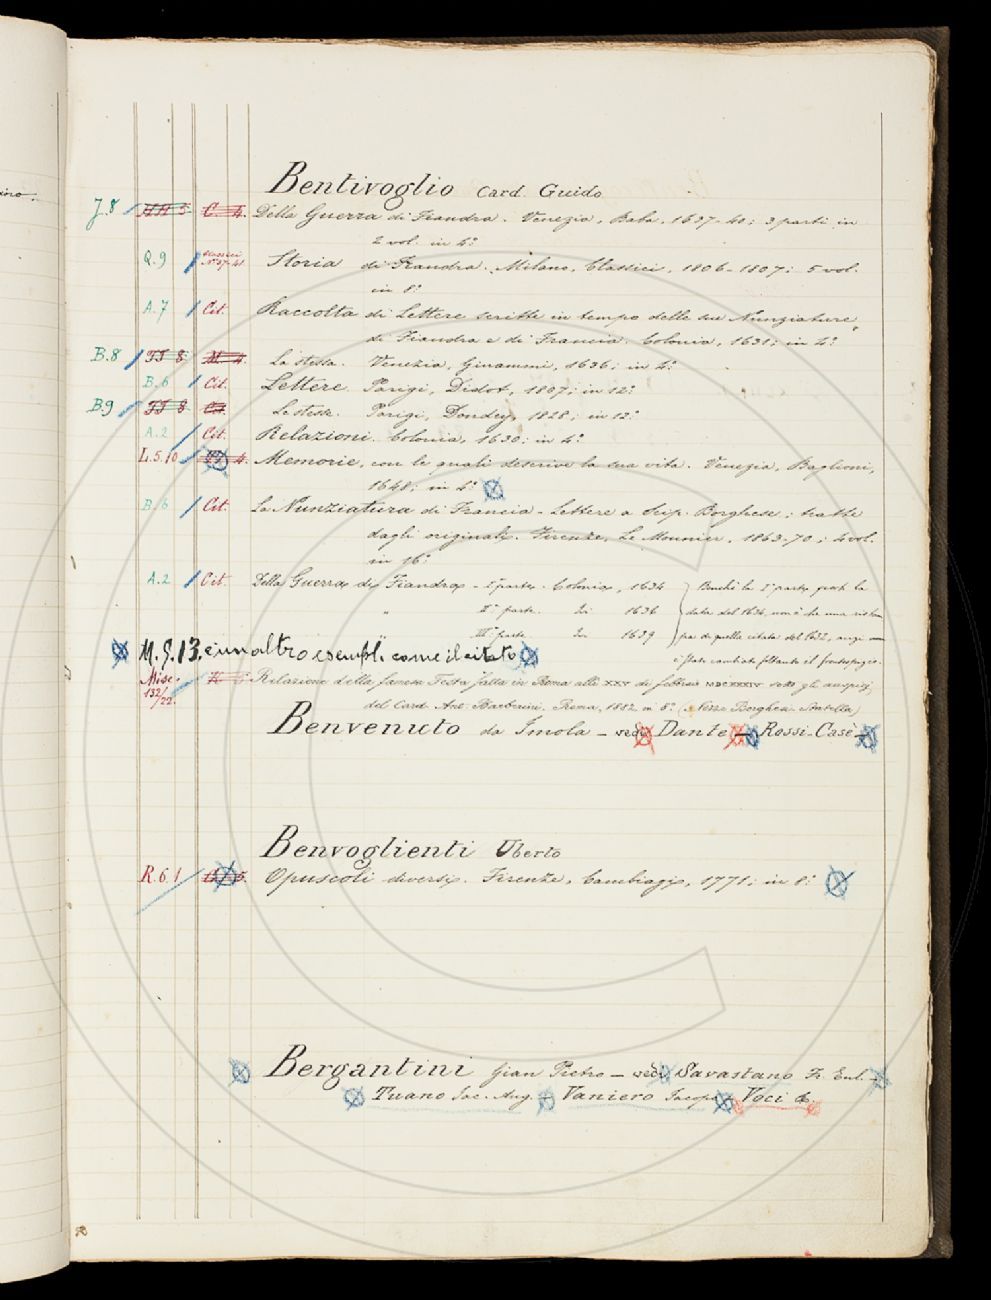 Bentivoglio Card. Guido
J.8 HH 5 C. 4. Della Guerra di Fiandra. Venezia, Baba, 1637-40; 3 parti in
2 vol. in 4°
Q.9 Classici Storia di Fiandra. Milano, Classici, 1806-1807; 5 vol.
in 8°
A.7 Cit. Raccolta di Lettere scritte in tempo delle sue Nunziature
di Fiandra e di Francia. Colonia, 1631; in 4°
B.8 TT 8 M 4. La stessa. Venezia, Ginammi, 1636; in 4°
B.6 Cit. Lettere. Parigi, Didot, 1807; in 12°
B.9 TT 8 Le stesse. Parigi, Dondey, 1828; in 12°
A.2 Cit. Relazioni. Colonia, 1630; in 4°
L.5.10 4. Memorie, con le quali descrive la sua vita. Venezia, Baglioni,
1648; in 4°
B.6 Cit. La Nunziatura di Francia - Lettere a Scip. Borghese; tratte
dagli originali. Firenze, Le Monnier, 1863-70; 4 vol.
in 16°
A.2 Cit. Della Guerra di Fiandra - Iª parte. Colonia, 1634 Benchè la Iª parte porti la
" IIª parte. In 1636 data del 1634, non è che una ristam
IIIª parte. In 1639 pa di quella citata del 1632, anzi
è stato cambiato soltanto il frontespizio.
M.S.13. è un altro esempl. come il citato
Misc. 132/22. Relazione della famosa Festa fatta in Roma alli XXV di febbraio MDCXXXIV sotto gli auspizj
del Card. Ant. Barberini. Roma, 1882 in 8° (Nozze Borghese
Benvenuto da Imola - vedi Dante - Rossi-Case -
Benvoglienti Uberto
R.6 1 5. Opuscoli diversi. Firenze, Cambiagi, 1771; in 8°
Bergantini Gian Pietro - vedi Savastano Fr. Eul. -
Tuano Jac. Aug. - Vaniero Jacopo - Voci &.